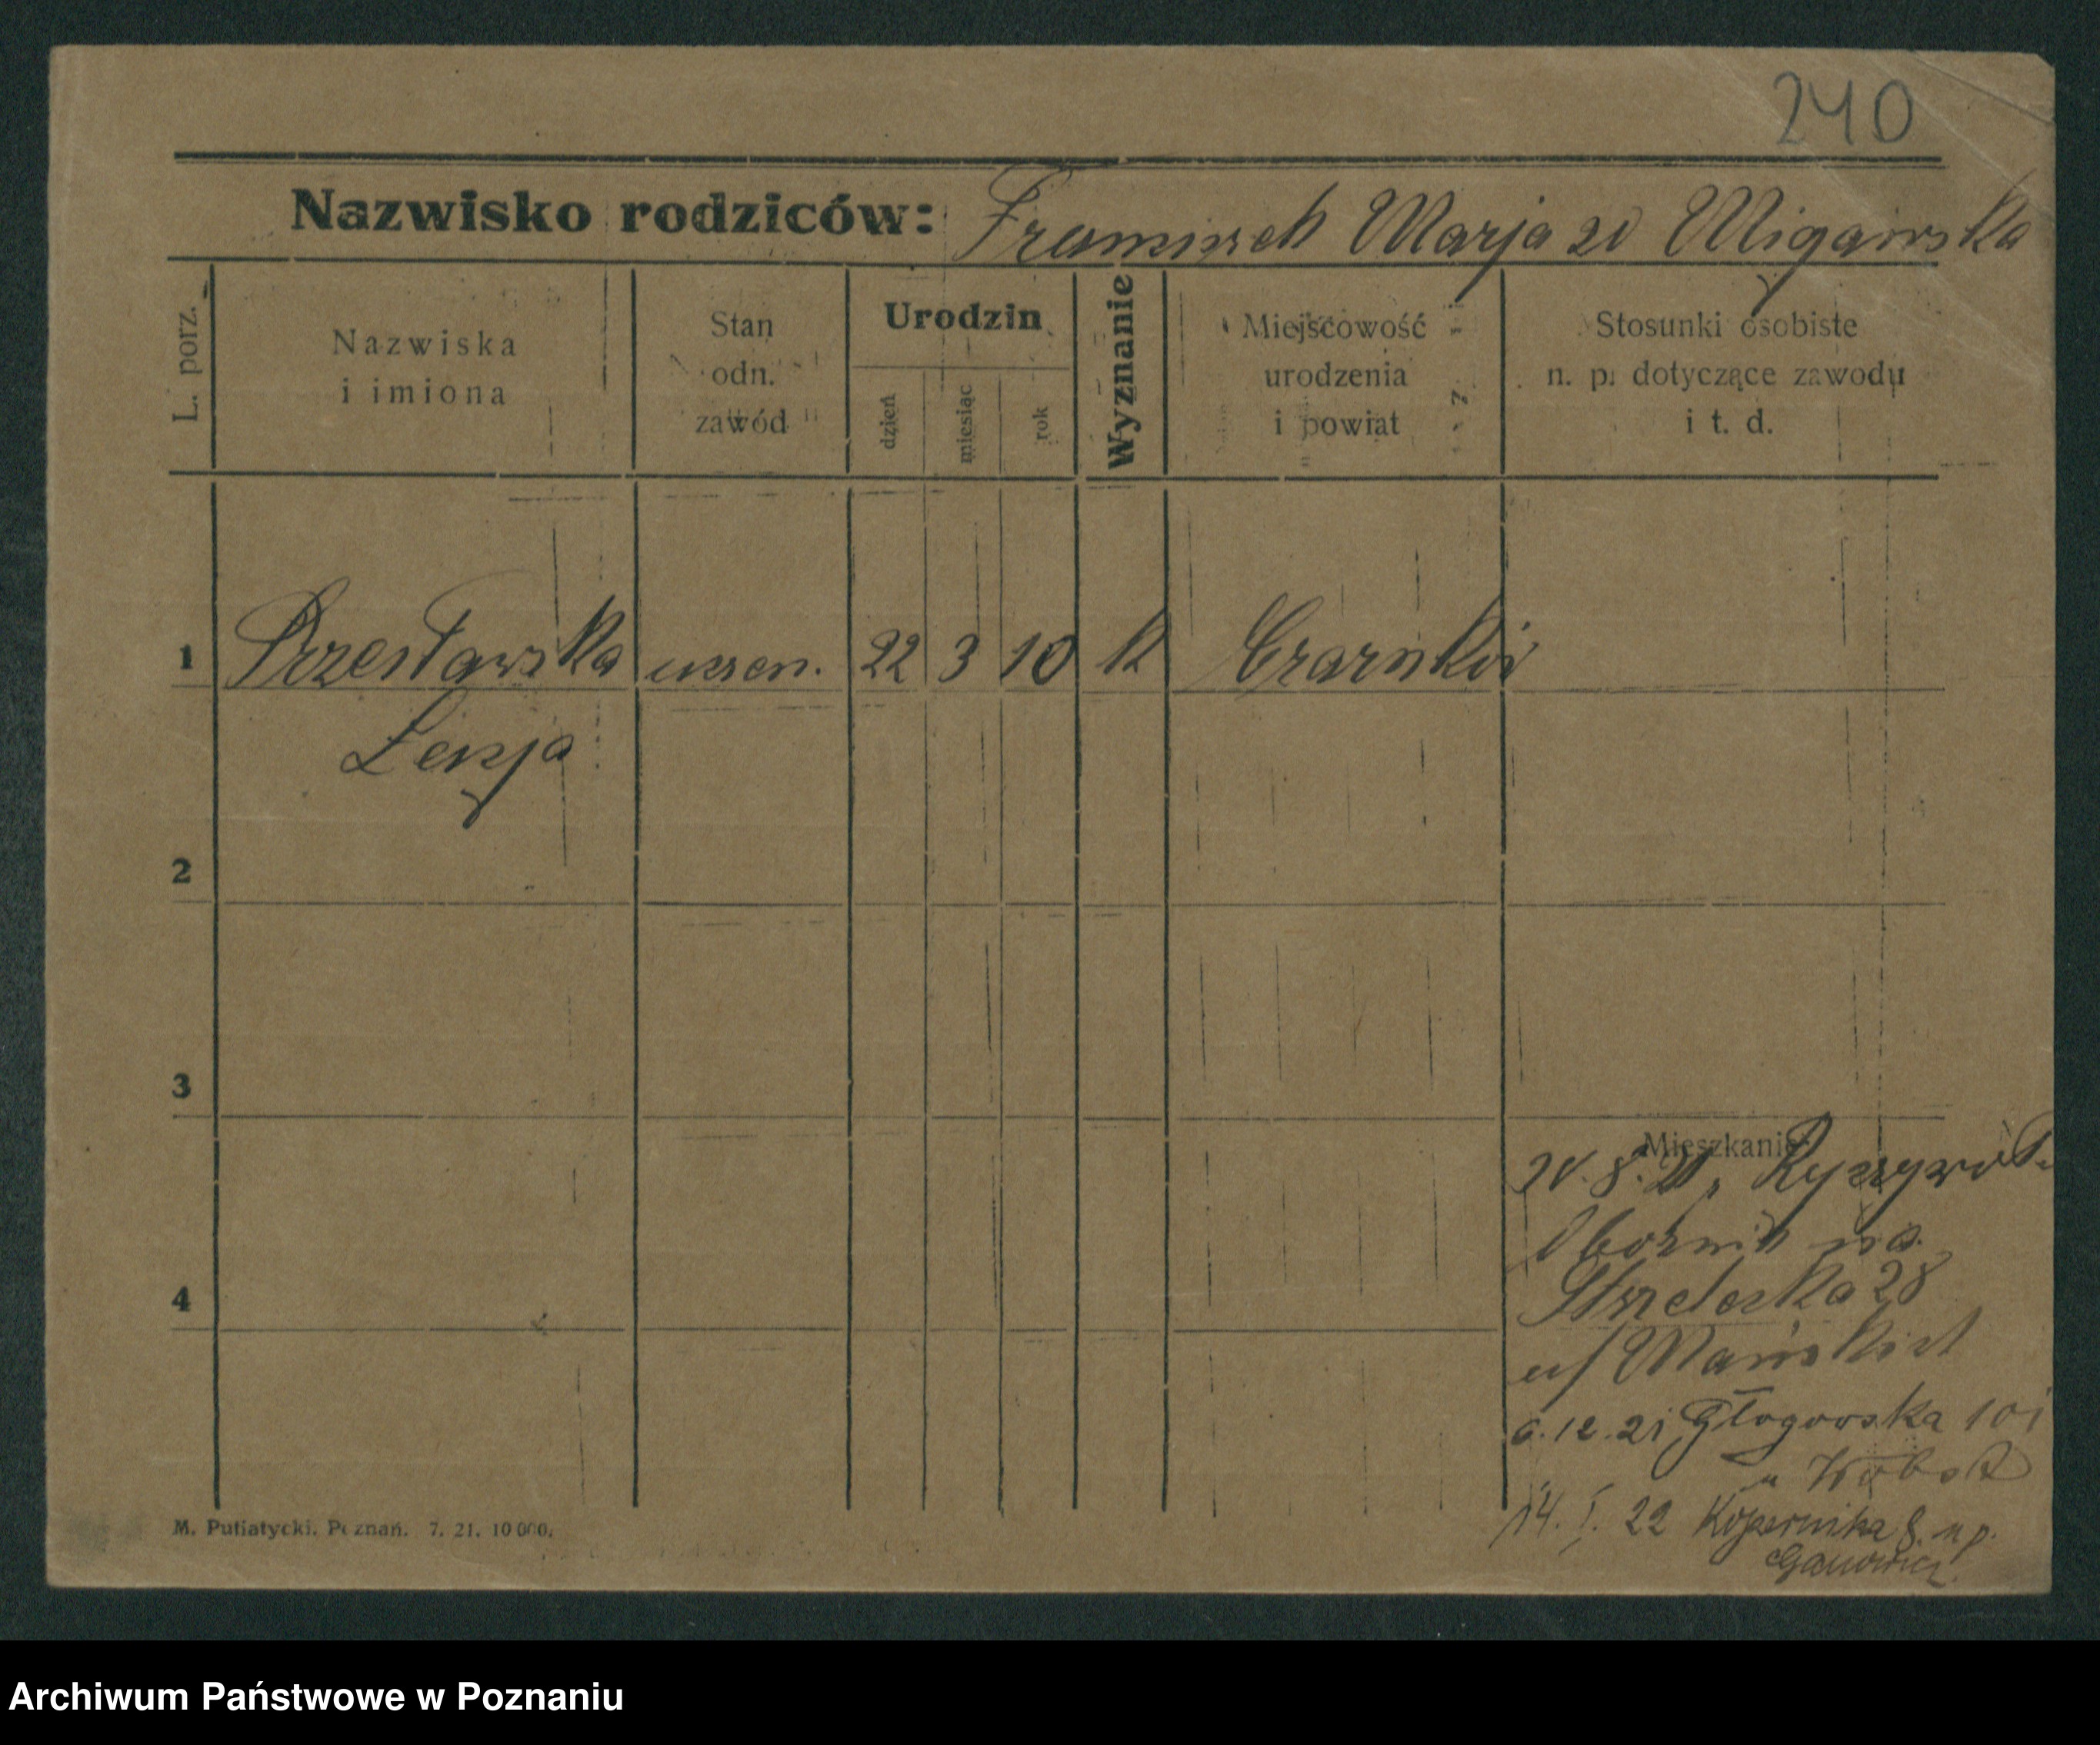 240
Nazwisko rodziców: Franciszek Marja zd Migawska
L. porz.
Nazwiska
i imiona
Stan
odn.
zawód
Urodzin
dzień
miesiąc
rok
Wyznanie
Miejscowość
urodzenia
i powiat
Stosunki osobiste
n. p. dotyczące zawodu
i t. d.
1 Przesławska uczen. 22 3 10 k Czarnków
2
3
4
Mieszkanie
Obornik
Strzelecka 28
6.12.21 Głogowska 101
14. I. 22 Kopernika 8. u p.
M. Putiatycki. Poznań. 7. 21. 10 000.
Archiwum Państwowe w Poznaniu